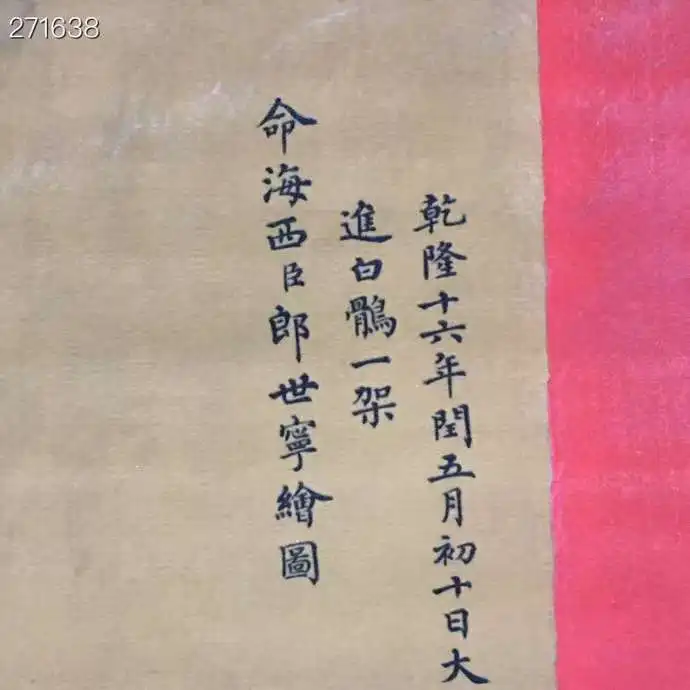 271638
乾隆十六年閏五月初十日大
進白鶻一架
命海西臣郎世寧繪圖